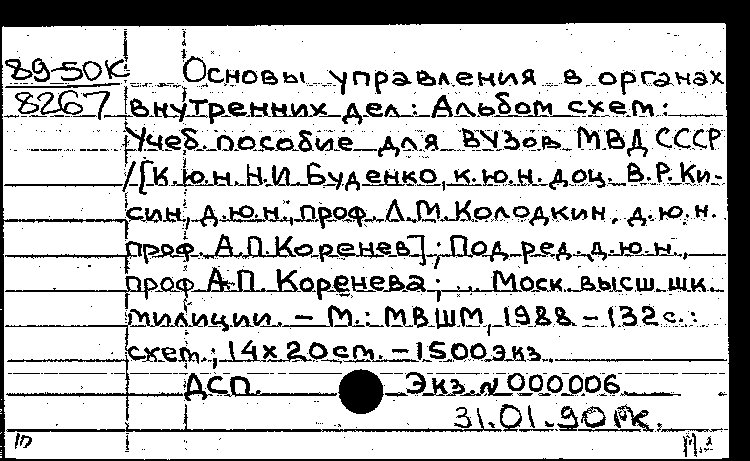 89-50К Основы управления в органах
8267 внутренних дел: Альбом схем:
Учеб. пособие для вузов МВД СССР
/[К.ю.н. Н.И. Буденко, к.ю.н. доц. В.Р. Ки-
син, д.ю.н., проф. Л.М. Колодкин, д.ю.н.
проф. А.П. Коренев]; Под ред. д.ю.н.,
проф А.П. Коренева; ... Моск. высш. шк.
милиции. - М.: МВШМ, 1988 - 132 с.:
схем.; 14х20 cm. - 1500 экз.
ДСП. Экз. № 000006
31.01.90